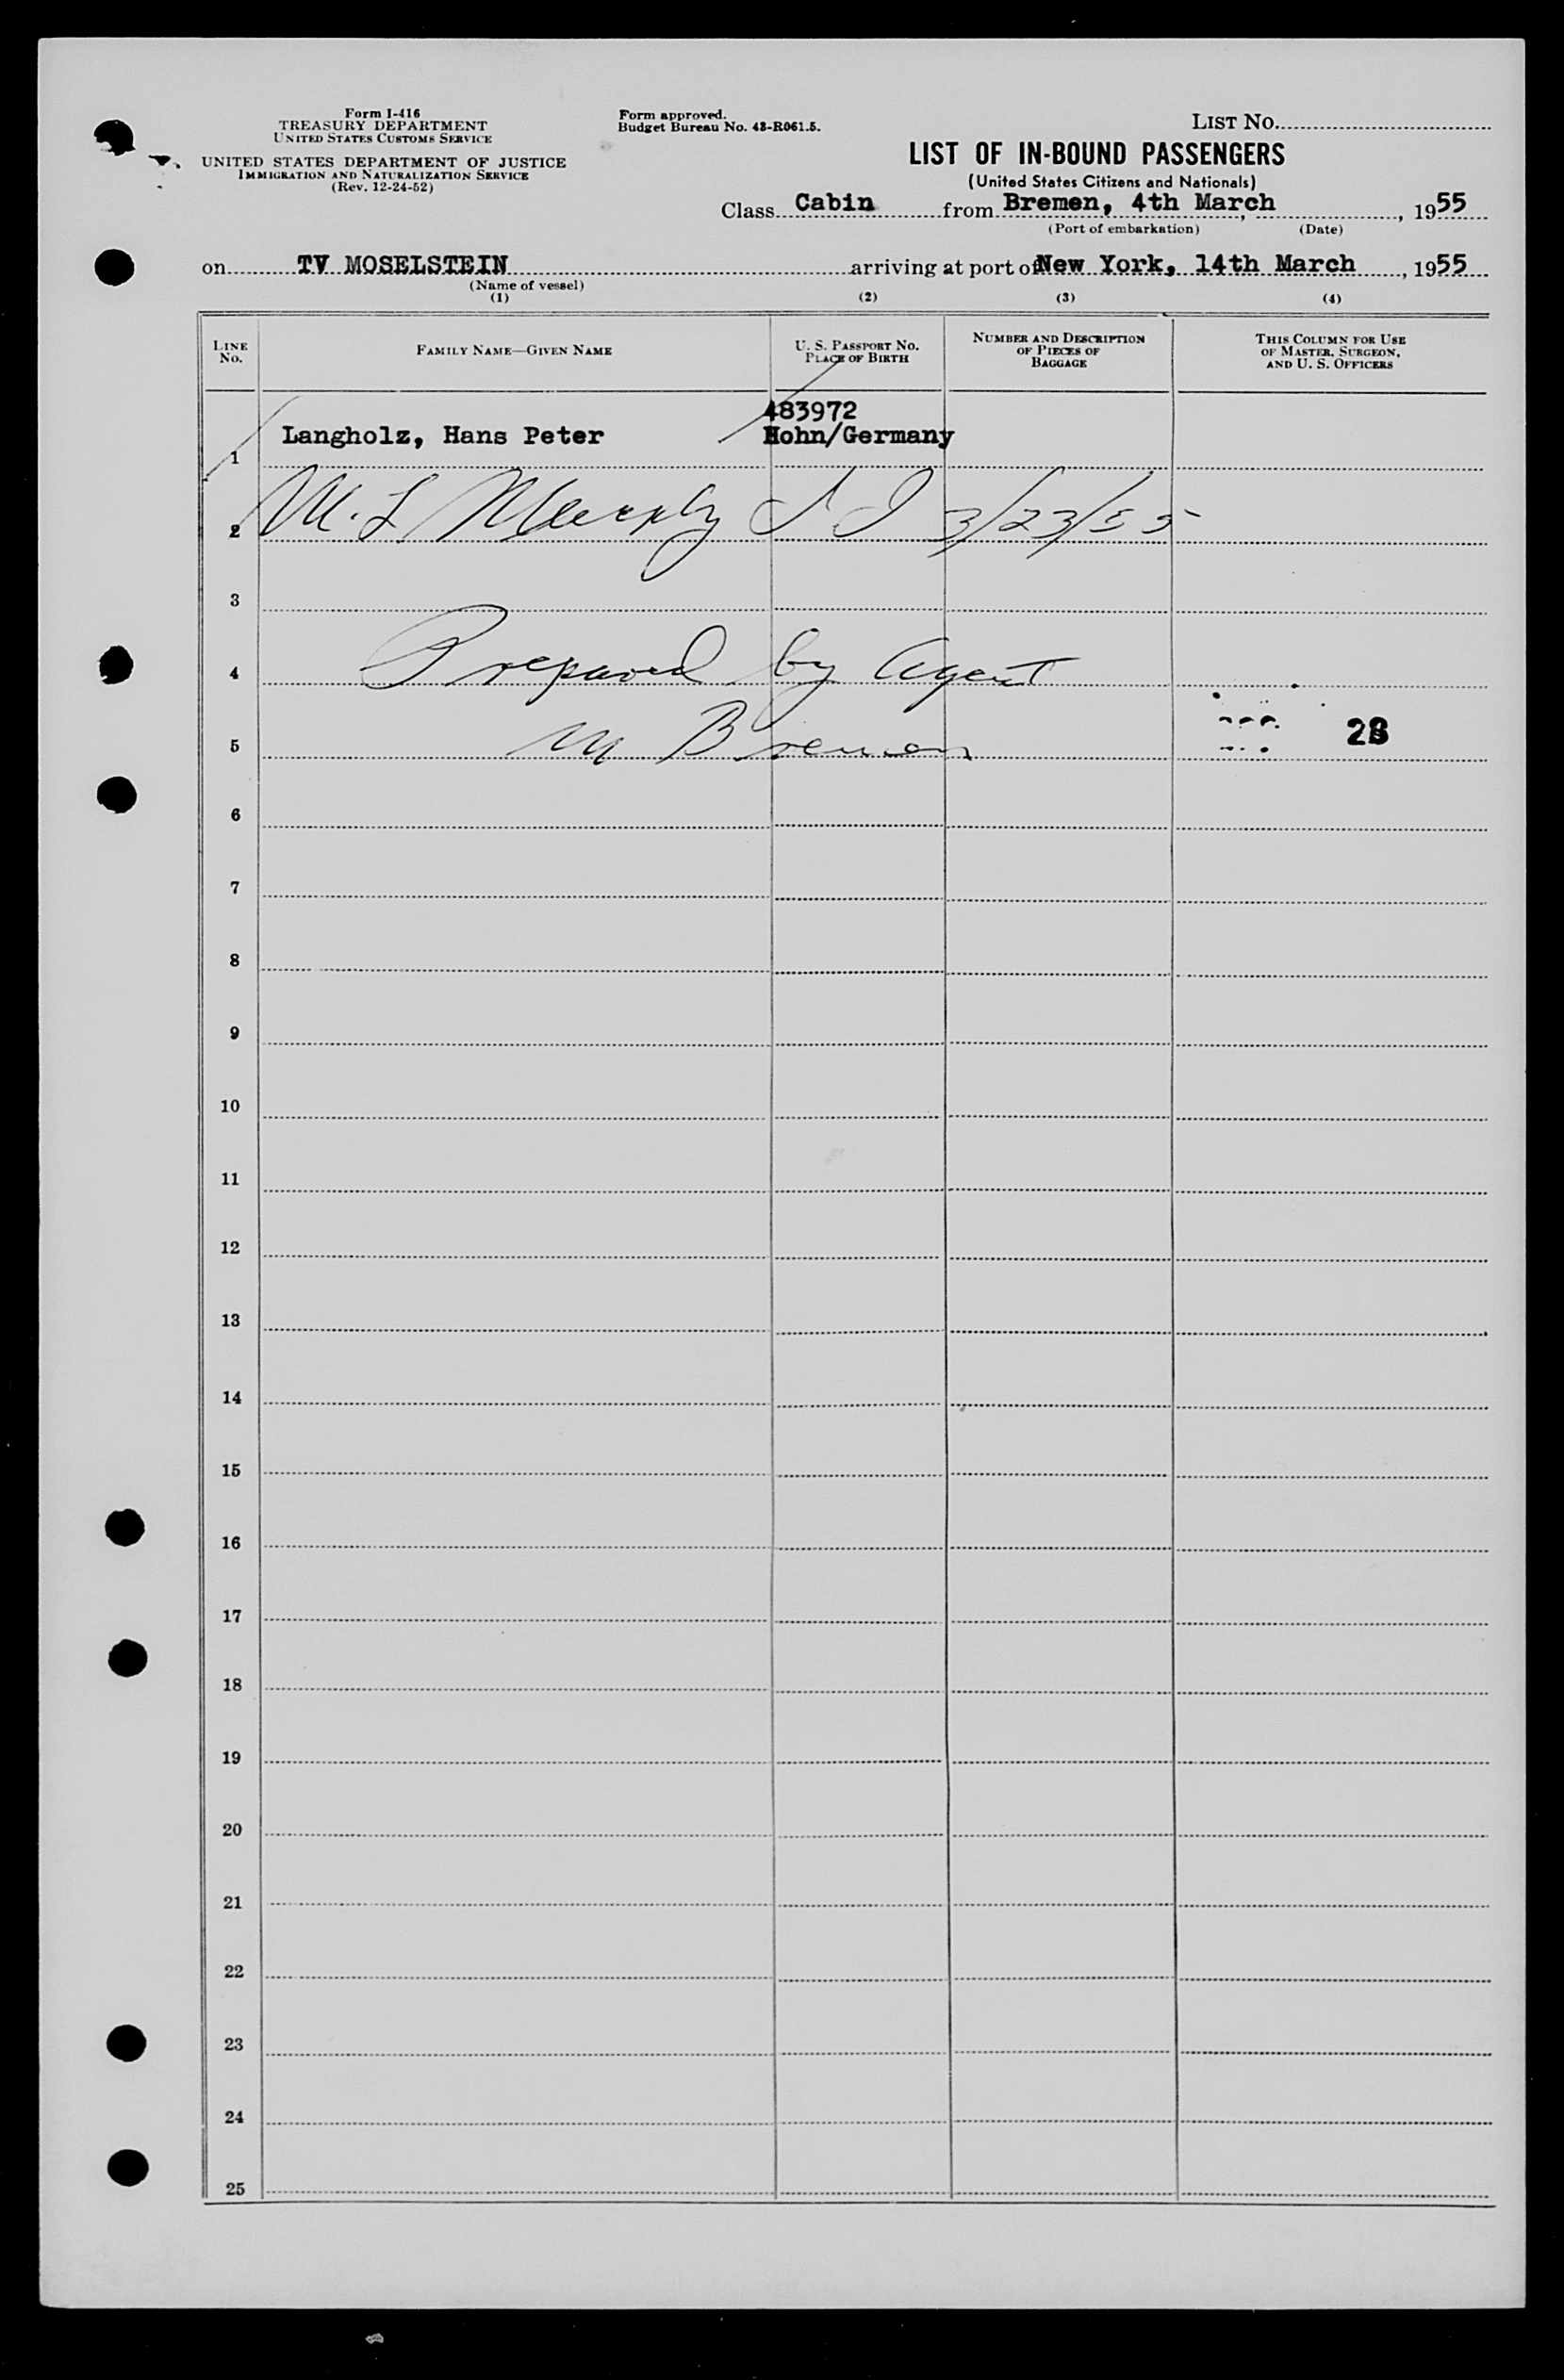 Form I-416
TREASURY DEPARTMENT
UNITED STATES CUSTOMS SERVICE
UNITED STATES DEPARTMENT OF JUSTICE
IMMIGRATION AND NATURALIZATION SERVICE
(Rev. 12-24-52)
Form approved.
Budget Bureau No. 43-R061.5.
LIST NO.
LIST OF IN-BOUND PASSENGERS
(United States Citizens and Nationals)
Class Cabin from Bremen, 4th March, 1955
(Port of embarkation) (Date)
on TV MOSELSTEIN arriving at port of New York, 14th March, 1955
(Name of vessel)
(1) (2) (3) (4)
LINE NO.
FAMILY NAME—GIVEN NAME
U. S. PASSPORT NO.
PLACE OF BIRTH
NUMBER AND DESCRIPTION
OF PIECES OF
BAGGAGE
THIS COLUMN FOR USE
OF MASTER, SURGEON,
AND U. S. OFFICERS
483972
1 Langholz, Hans Peter Hohn/Germany
2 M. L Murphy 3/23/55
3
4 Prepared by Agent
5 Bremen 28
6
7
8
9
10
11
12
13
14
15
16
17
18
19
20
21
22
23
24
25